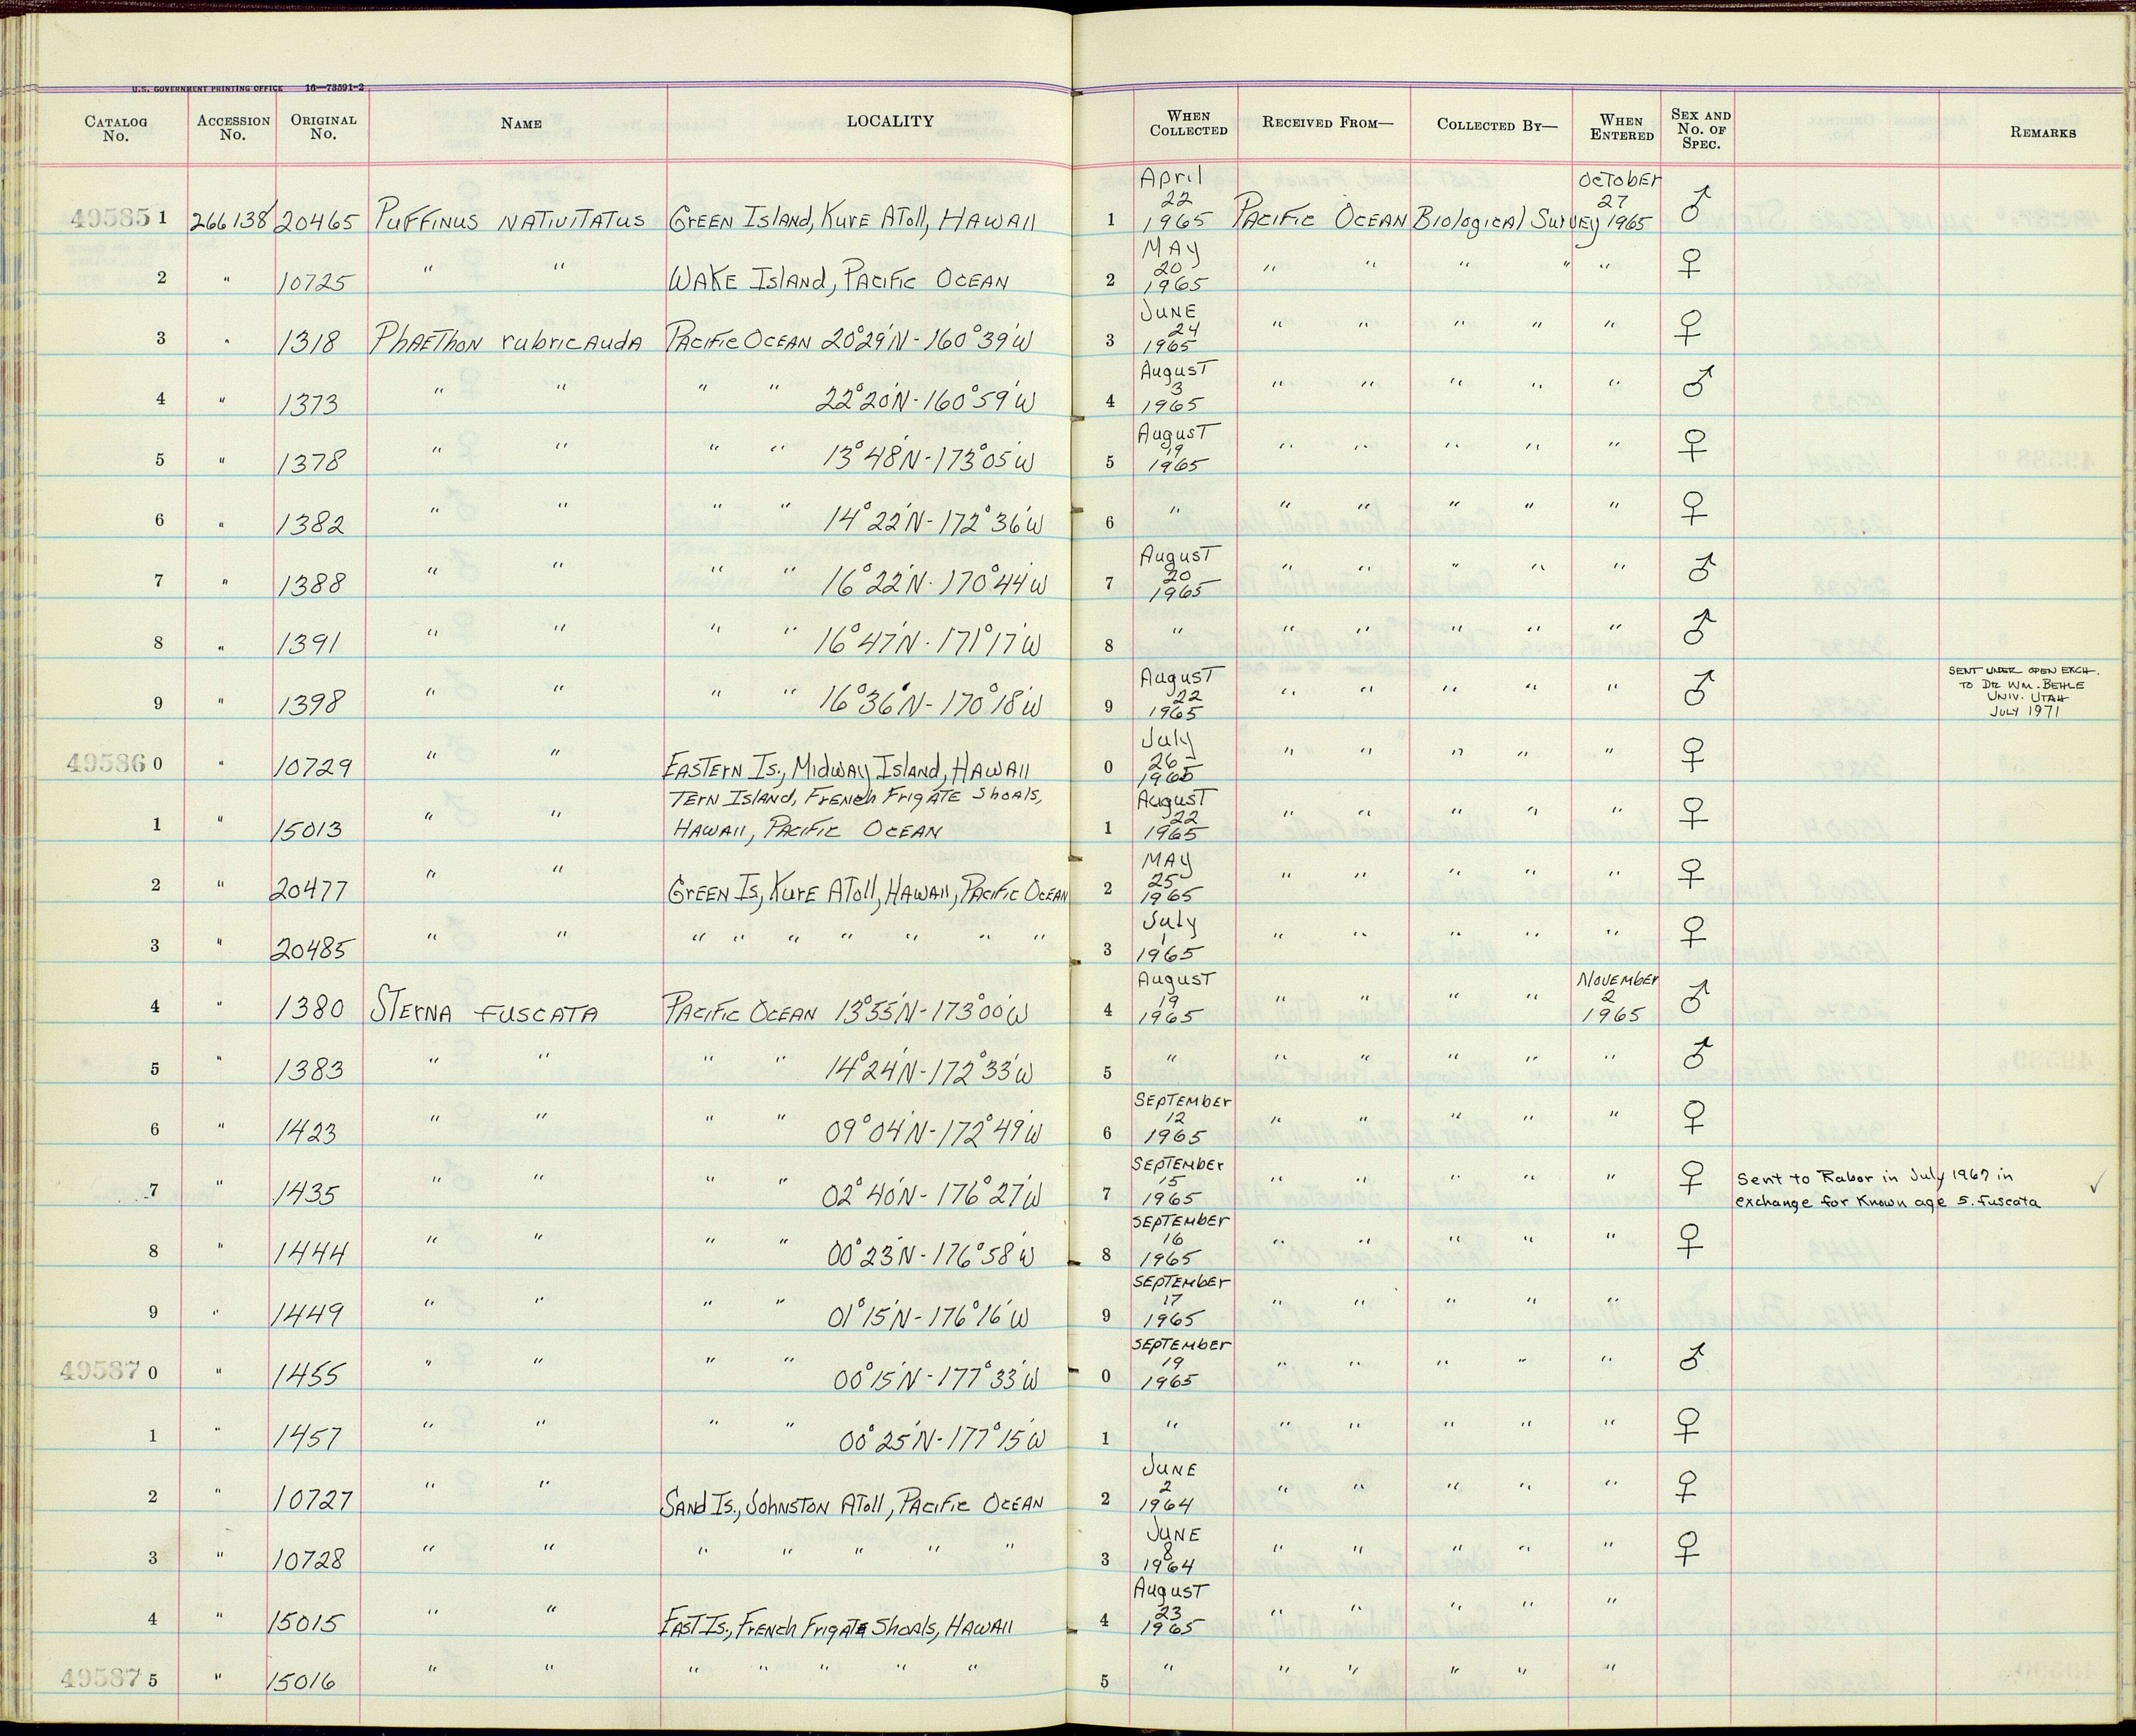 U.S. GOVERNMENT PRINTING OFFICE 16—73591-2
CATALOG No. ACCESSION No. ORIGINAL No. NAME LOCALITY WHEN COLLECTED RECEIVED FROM— COLLECTED BY— WHEN ENTERED SEX AND No. OF SPEC. REMARKS
49585 1 266138 20465 Puffinus nativitatus Green Island, Kure Atoll, Hawaii 1 April 22 1965 Pacific Ocean Biological Survey October 27 1965 ♂
2 " 10725 " " Wake Island, Pacific Ocean 2 May 20 1965 " " " " " ♀
3 " 1318 Phaethon rubricauda Pacific Ocean 20°29'N - 160°39'W 3 June 24 1965 " " " " " ♀
4 " 1373 " " " " 22°20'N - 160°59'W 4 August 3 1965 " " " " " ♂
5 " 1378 " " " " 13°48'N - 173°05'W 5 August 19 1965 " " " " " ♀
6 " 1382 " " " " 14°22'N - 172°36'W 6 " " " " " " ♀
7 " 1388 " " " " 16°22'N - 170°44'W 7 August 20 1965 " " " " " ♂
8 " 1391 " " " " 16°47'N - 171°17'W 8 " " " " " " ♂
9 " 1398 " " " " 16°36'N - 170°18'W 9 August 22 1965 " " " " " ♂ SENT UNDER OPEN EXCH. TO DR WM. BEHLE UNIV. UTAH JULY 1971
49586 0 " 10729 " " Eastern Is., Midway Island, Hawaii 0 July 26 1965 " " " " " ♀
1 " 15013 " " Tern Island, French Frigate Shoals, Hawaii, Pacific Ocean 1 August 22 1965 " " " " " ♀
2 " 20477 " " Green Is, Kure Atoll, Hawaii, Pacific Ocean 2 May 25 1965 " " " " " ♀
3 " 20485 " " " " " " " " " 3 July 1 1965 " " " " " ♀
4 " 1380 Sterna fuscata Pacific Ocean 13°55'N - 173°00'W 4 August 19 1965 " " " " November 2 1965 ♂
5 " 1383 " " " " 14°24'N - 172°33'W 5 " " " " " " ♂
6 " 1423 " " " " 09°04'N - 172°49'W 6 September 12 1965 " " " " " ♀
7 " 1435 " " " " 02°40'N - 176°27'W 7 September 15 1965 " " " " " ♀ Sent to Rabor in July 1967 in exchange for known age S. fuscata ✓
8 " 1444 " " " " 00°23'N - 176°58'W 8 September 16 1965 " " " " " ♀
9 " 1449 " " " " 01°15'N - 176°16'W 9 September 17 1965 " " " " "
49587 0 " 1455 " " " " 00°15'N - 177°33'W 0 September 19 1965 " " " " " ♂
1 " 1457 " " " " 00°25'N - 177°15'W 1 " " " " " " ♀
2 " 10727 " " Sand Is., Johnston Atoll, Pacific Ocean 2 June 2 1964 " " " " " ♀
3 " 10728 " " " " " " " 3 June 8 1964 " " " " " ♀
4 " 15015 " " East Is., French Frigate Shoals, Hawaii 4 August 23 1965 " " " " "
49587 5 " 15016 " " " " " " " 5 " " " " " "